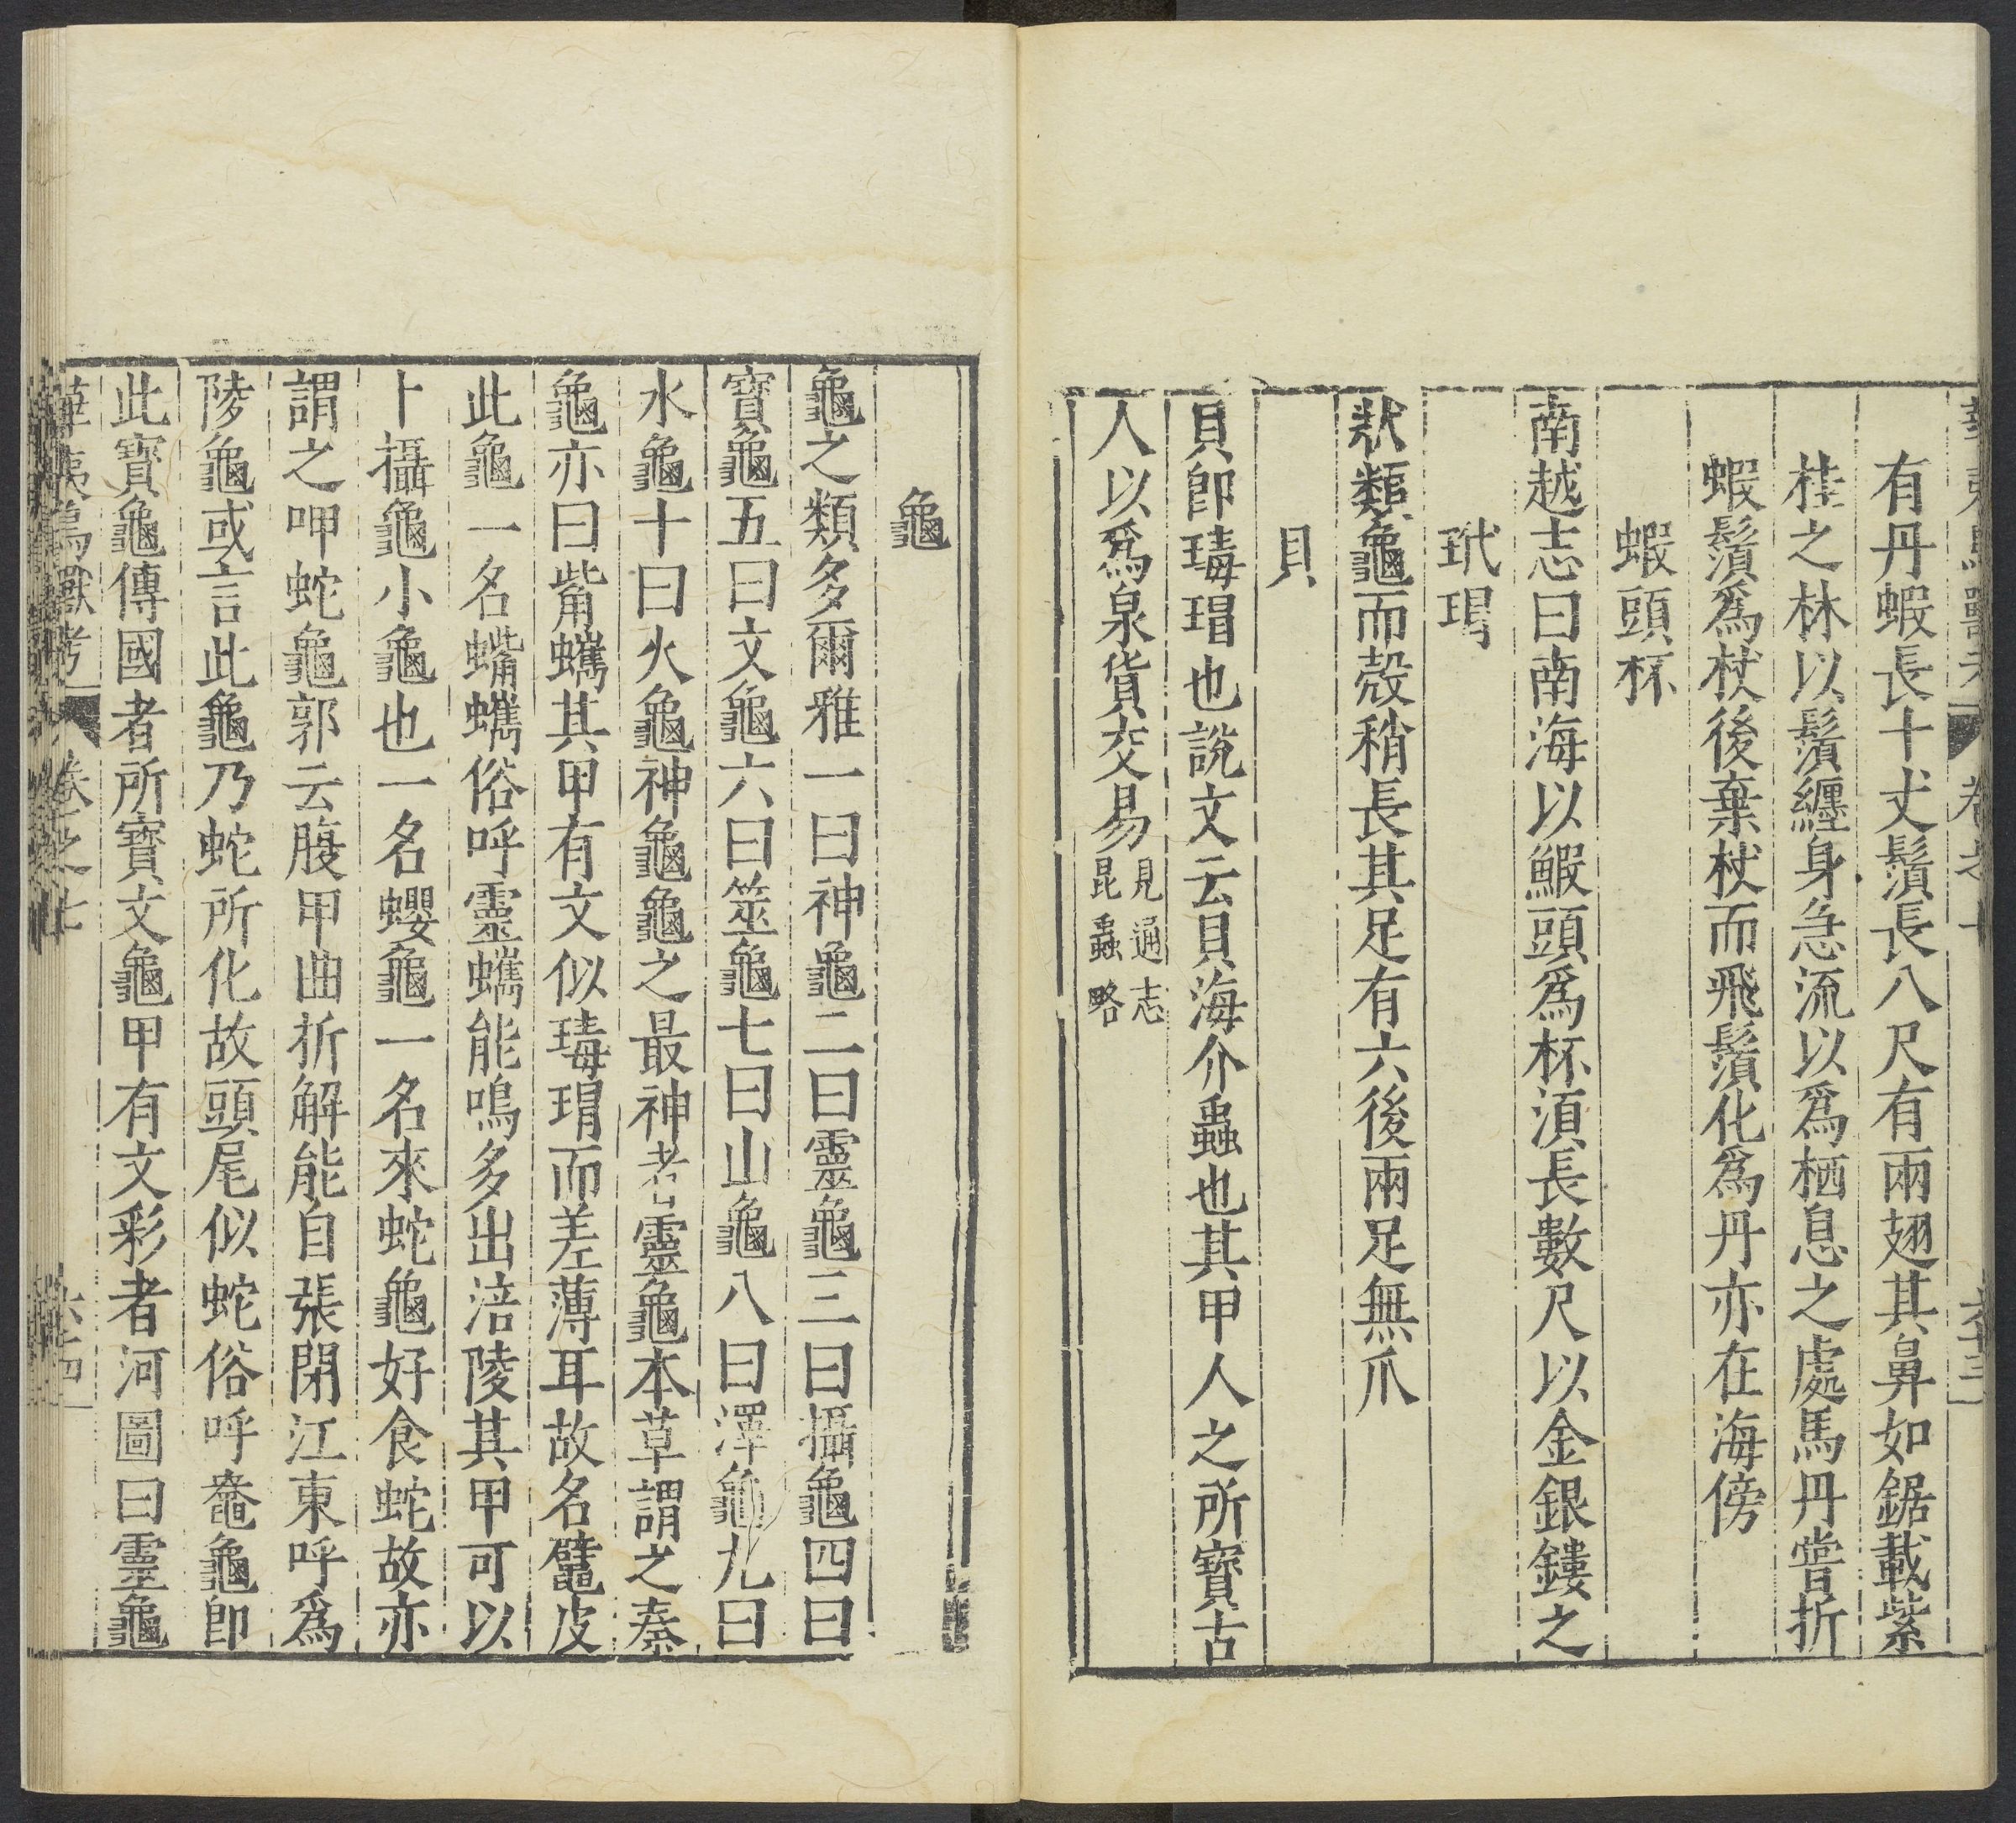 有丹蝦長十丈鬚長八尺有兩翅其鼻如鋸載紫
桂之林以鬚纏身急流以爲栖息之處馬丹嘗折
蝦鬚爲杖後棄杖而飛鬚化爲丹亦在海傍
蝦頭杯
南越志曰南海以鰕頭爲杯湏長數尺以金銀鏤之
玳瑁
狀類龜而殼稍長其足有六後兩足無爪
貝
貝卽瑇瑁也說文云貝海介蟲也其甲人之所寳古
人以爲泉貨交易見通志昆蟲略
龜
龜之類多爾雅一曰神龜二曰靈龜三曰攝龜四曰
寳龜五曰文龜六曰筮龜七曰山龜八曰澤龜九曰
水龜十曰火龜神龜龜之最神者靈龜本草謂之秦
龜亦曰觜蠵其甲有文似瑇瑁而差薄耳故名鼊皮
此龜一名蟕蠵俗呼靈蠵能鳴多出涪陵其甲可以
卜攝龜小龜也一名蠳龜一名來蛇龜好食蛇故亦
謂之呷蛇龜郭云腹甲曲折解能自張閉江東呼爲
陵龜或言此龜乃蛇所化故頭尾似蛇俗呼鴦龜卽
此寳龜傳國者所寳文龜甲有文彩者河圖曰靈龜
華夷鳥獸考 卷之七 六十四